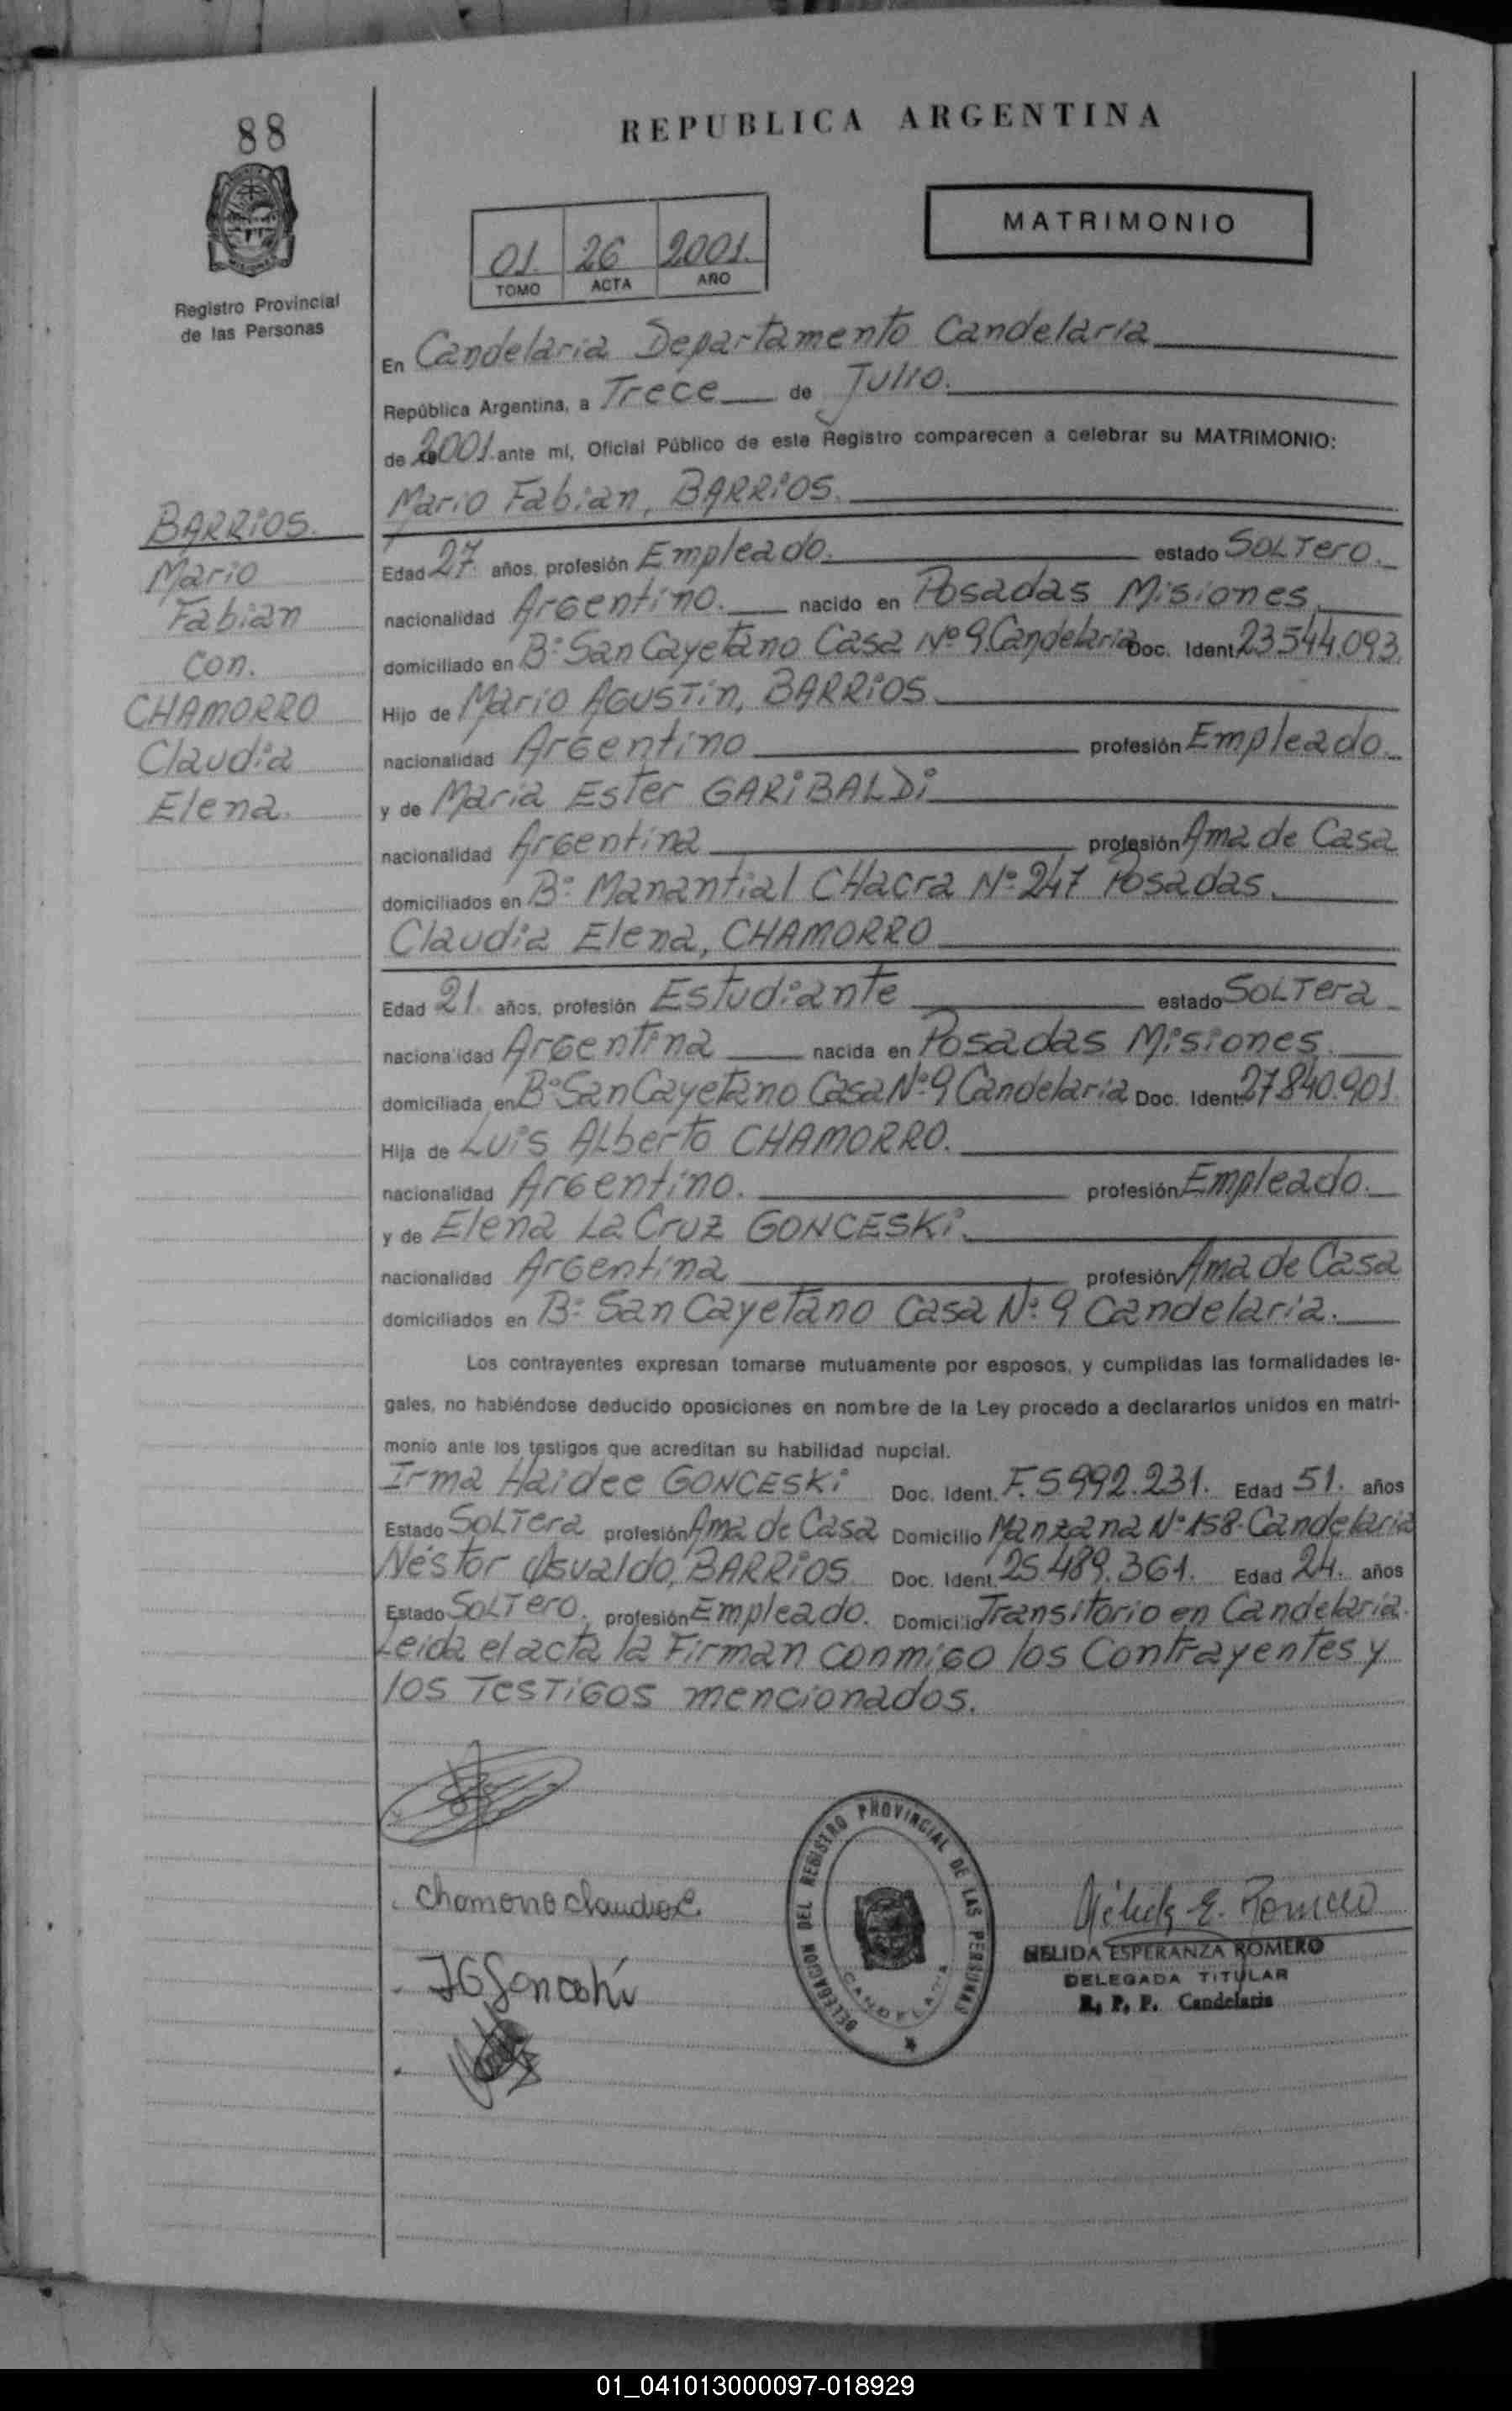 88
REPUBLICA ARGENTINA
MATRIMONIO
01. 26 2001.
TOMO ACTA AÑO
Registro Provincial
de las Personas
En Candelaria Departamento Candelaria
República Argentina, a Trece de Julio.
de 2001. ante mí, Oficial Público de este Registro comparecen a celebrar su MATRIMONIO:
Mario Fabian, BARRIOS.
BARRIOS.
Mario
Fabian
Con.
CHAMORRO
Claudia
Elena.
Edad 27. años, profesión Empleado. estado SOLTero.
nacionalidad Argentino. nacido en Posadas Misiones.
domiciliado en Bº San Cayetano Casa Nº 9 Candelaria Doc. Ident. 23.544.093.
Hijo de Mario AGUSTin, BARRIOS.
nacionalidad Argentino profesión Empleado.
y de Maria Ester GARIBALDI
nacionalidad Argentina profesión Ama de Casa
domiciliados en Bº Manantial CHacra Nº 247 Posadas.
Claudia Elena, CHAMORRO
Edad 21. años, profesión Estudiante estado SOLTera
nacionalidad Argentina nacida en Posadas Misiones.
domiciliada en Bº San Cayetano Casa Nº 9 Candelaria Doc. Ident. 27.840.901.
Hija de Luis ALberto CHAMORRO.
nacionalidad Argentino. profesión Empleado.
y de Elena La Cruz GONCESKI.
nacionalidad Argentina profesión Ama de Casa
domiciliados en Bº San Cayetano Casa Nº 9 Candelaria.
Los contrayentes expresan tomarse mutuamente por esposos, y cumplidas las formalidades le-
gales, no habiéndose deducido oposiciones en nombre de la Ley procedo a declararlos unidos en matri-
monio ante los testigos que acreditan su habilidad nupcial.
Irma Haidee GONCESKI Doc. Ident. F.5.992.231. Edad 51. años
Estado SOLTera profesión Ama de Casa Domicilio Manzana Nº 158-Candelaria
Néstor Osvaldo, BARRIOS. Doc. Ident. 25.489.361. Edad 24. años
Estado SOLTero. profesión Empleado. Domicilio Transitorio en Candelaria.
Leida el acta la Firman conmigo los Contrayentes y
los Testigos mencionados.
Chamorro Claudia E.
DELEGACION DEL REGISTRO PROVINCIAL DE LAS PERSONAS
CANDELARIA
Nélida E. Romero
NELIDA ESPERANZA ROMERO
DELEGADA TITULAR
R. P. P. Candelaria
01_041013000097-018929